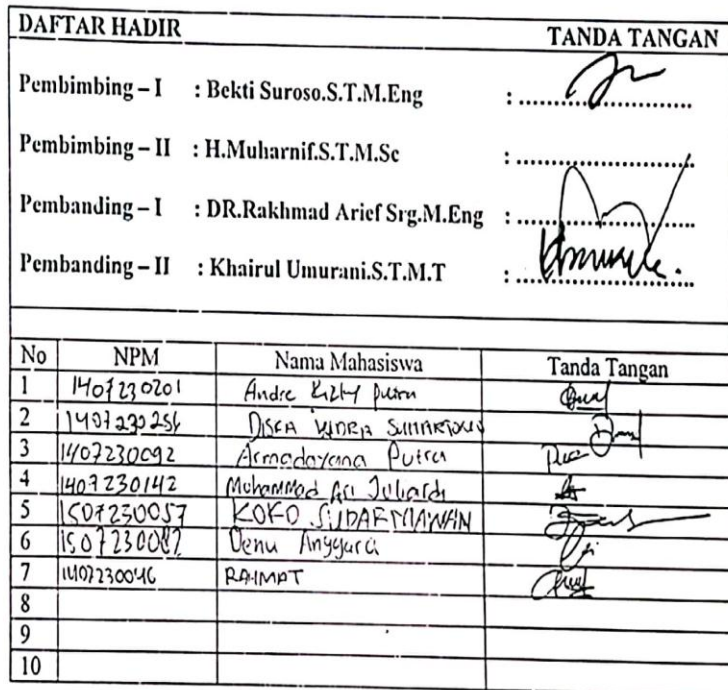 DAFTAR HADIR TANDA TANGAN
Pembimbing – I : Bekti Suroso.S.T.M.Eng : ..............................
Pembimbing – II : H.Muharnif.S.T.M.Sc : ..............................
Pembanding – I : DR.Rakhmad Arief Srg.M.Eng : ..............................
Pembanding – II : Khairul Umurani.S.T.M.T : ..............................
No NPM Nama Mahasiswa Tanda Tangan
1 1407230201 Andre Rizky putra
2 1407230256 DISCA
3 1407230092 Armadayana Putra
4 1407230142 Mohammad Ari Juliardi
5 1507230057 KOKO SUDARMAWAN
6 1507230082 Denu Anggara
7 1407230046 RAHMAT
8
9
10